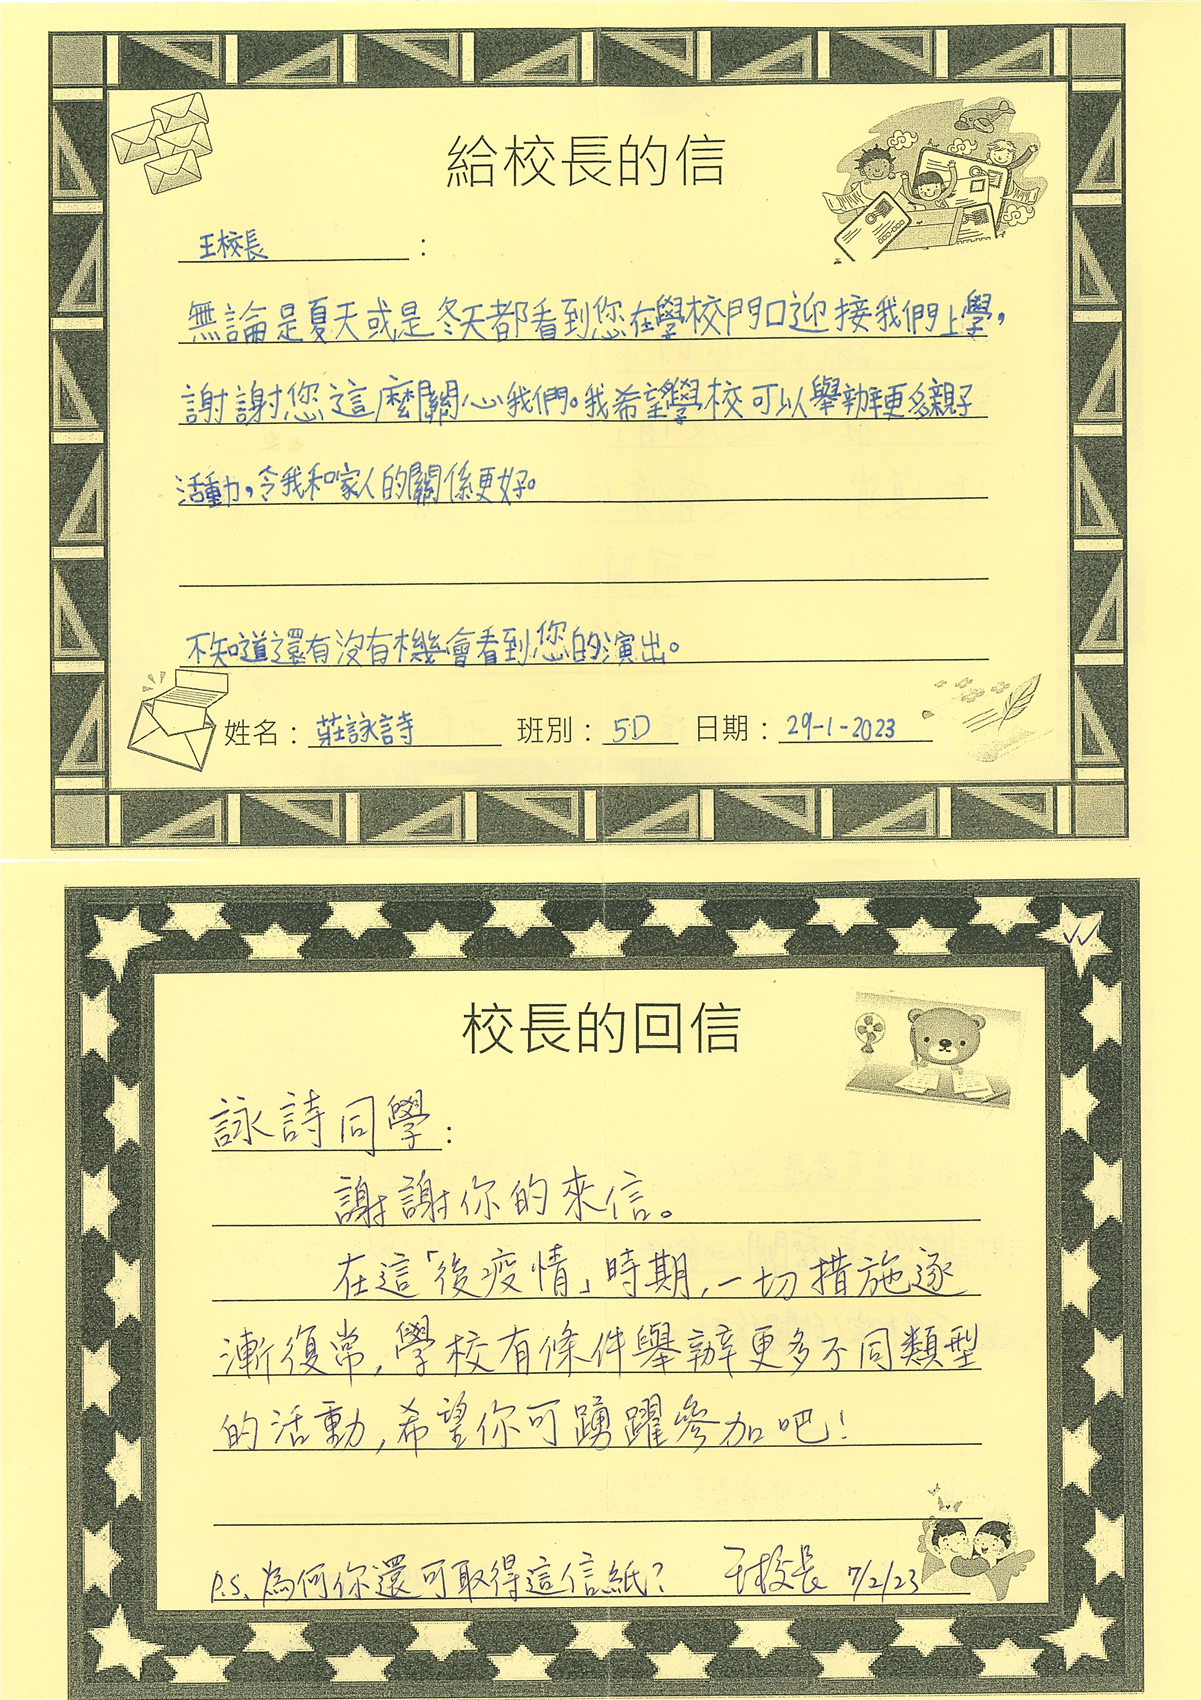 給校長的信
王校長：
無論是夏天或是冬天都看到您在學校門口迎接我們上學，
謝謝您這麼關心我們。我希望學校可以舉辦更多親子
活動，令我和家人的關係更好。
不知道還有沒有機會看到您的演出。
姓名：莊詠詩 班別：5D 日期：29-1-2023
校長的回信
詠詩同學：
謝謝你的來信。
在這「後疫情」時期，一切措施逐
漸復常，學校有條件舉辦更多不同類型
的活動，希望你可踴躍參加吧！
P.S. 為何你還可取得這信紙？ 王校長 7/2/23